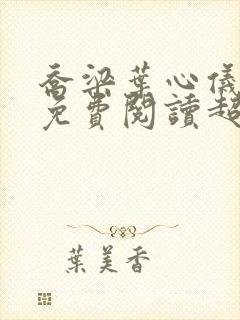 喬梁葉心儀
免費閱讀超
葉美香